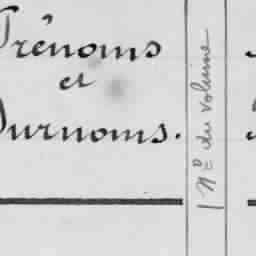 Prénoms
et
Surnoms.
N° du volume